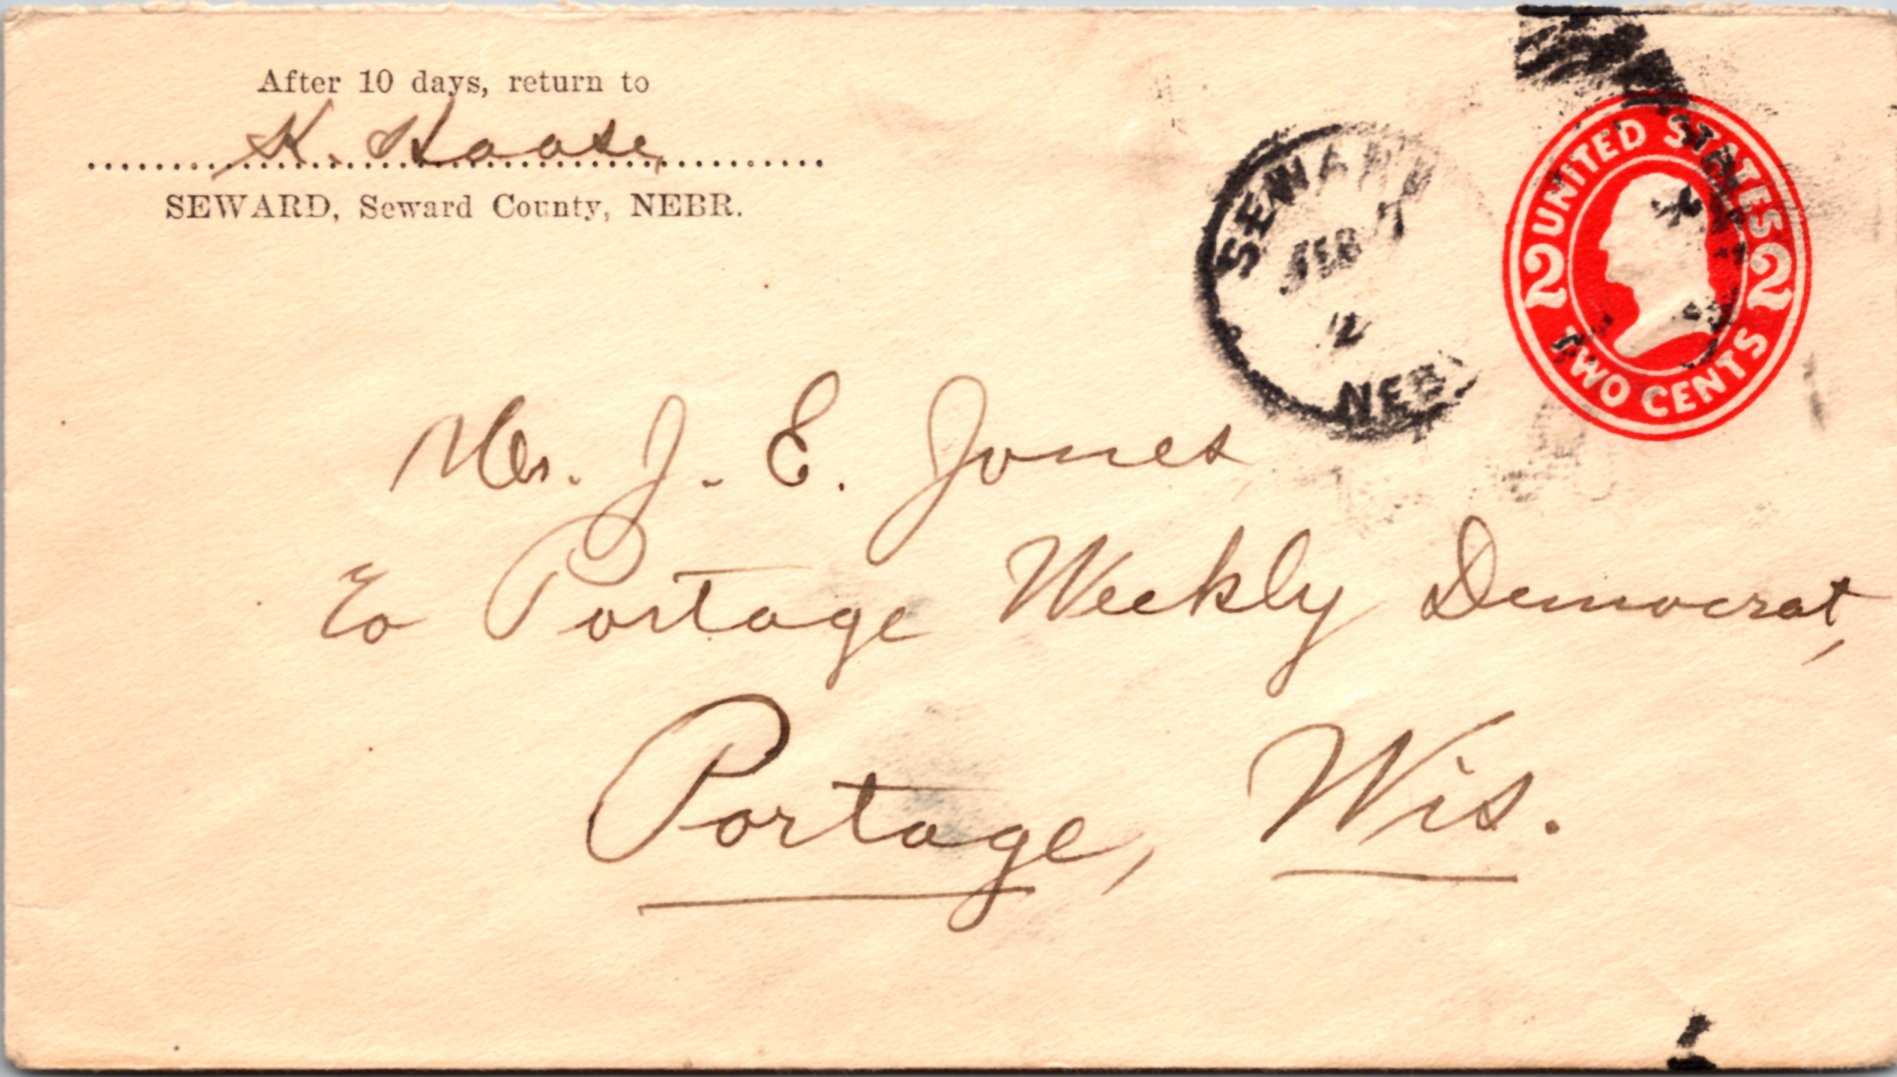 After 10 days, return to
K. Haase,
SEWARD, Seward County, NEBR.
SEWARD
FEB
NEBR
UNITED STATES
2 2
TWO CENTS
Mr. J. E. Jones
℅ Portage Weekly Democrat,
Portage, Wis.